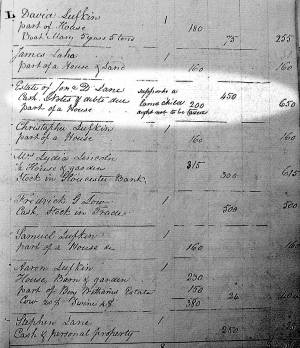 L David Lufkin 1
part of House 180
Boat Mary 5 years 5 tons 75 255
James Laha 1
part of a House & Land 160 160
Estate of Jona D. Lane supports a
Cash, Notes & debts due lame child 450
part of a House ought not to be taxed 200 650
Christopher Lufkin 1
part of a House 160 160
Mrs Lydia Lincoln
House & garden 315
Stock in Gloucester Bank 300 615
Fredrick G Low 1
Cash, Stock in Trade 500 500
Samuel Lufkin 1
part of a House 160
Aaron Lufkin 1
House, Barn & garden 230
part of Benj Williams Estate 150
Cow Swine 380 26
Stephen Lane 1
Cash & personal property 250